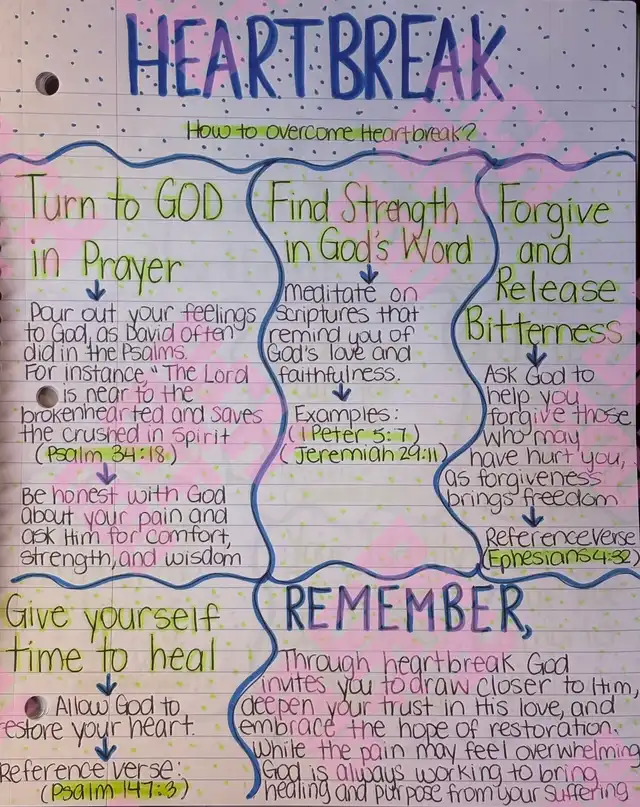 HEARTBREAK
How to overcome Heartbreak?
Turn to GOD
in Prayer
Pour out your feelings
to God, as David often
did in the Psalms.
For instance, "The Lord
is near to the
brokenhearted and saves
the crushed in spirit
(Psalm 34:18)
Be honest with God
about your pain and
ask Him for comfort,
strength, and wisdom
Find Strength
in God's Word
Meditate on
Scriptures that
remind you of
God's love and
faithfulness.
Examples:
(1 Peter 5:7)
(Jeremiah 29:11)
Forgive
and
Release
Bitterness
Ask God to
help you
forgive those
who may
have hurt you,
as forgiveness
brings freedom
Reference Verse
(Ephesians 4:32)
Give yourself
time to heal
Allow God to
restore your heart.
Reference verse:
(Psalm 147:3)
REMEMBER,
Through heartbreak God
invites you to draw closer to Him,
deepen your trust in His love, and
embrace the hope of restoration.
While the pain may feel overwhelming
God is always working to bring
healing and purpose from your suffering